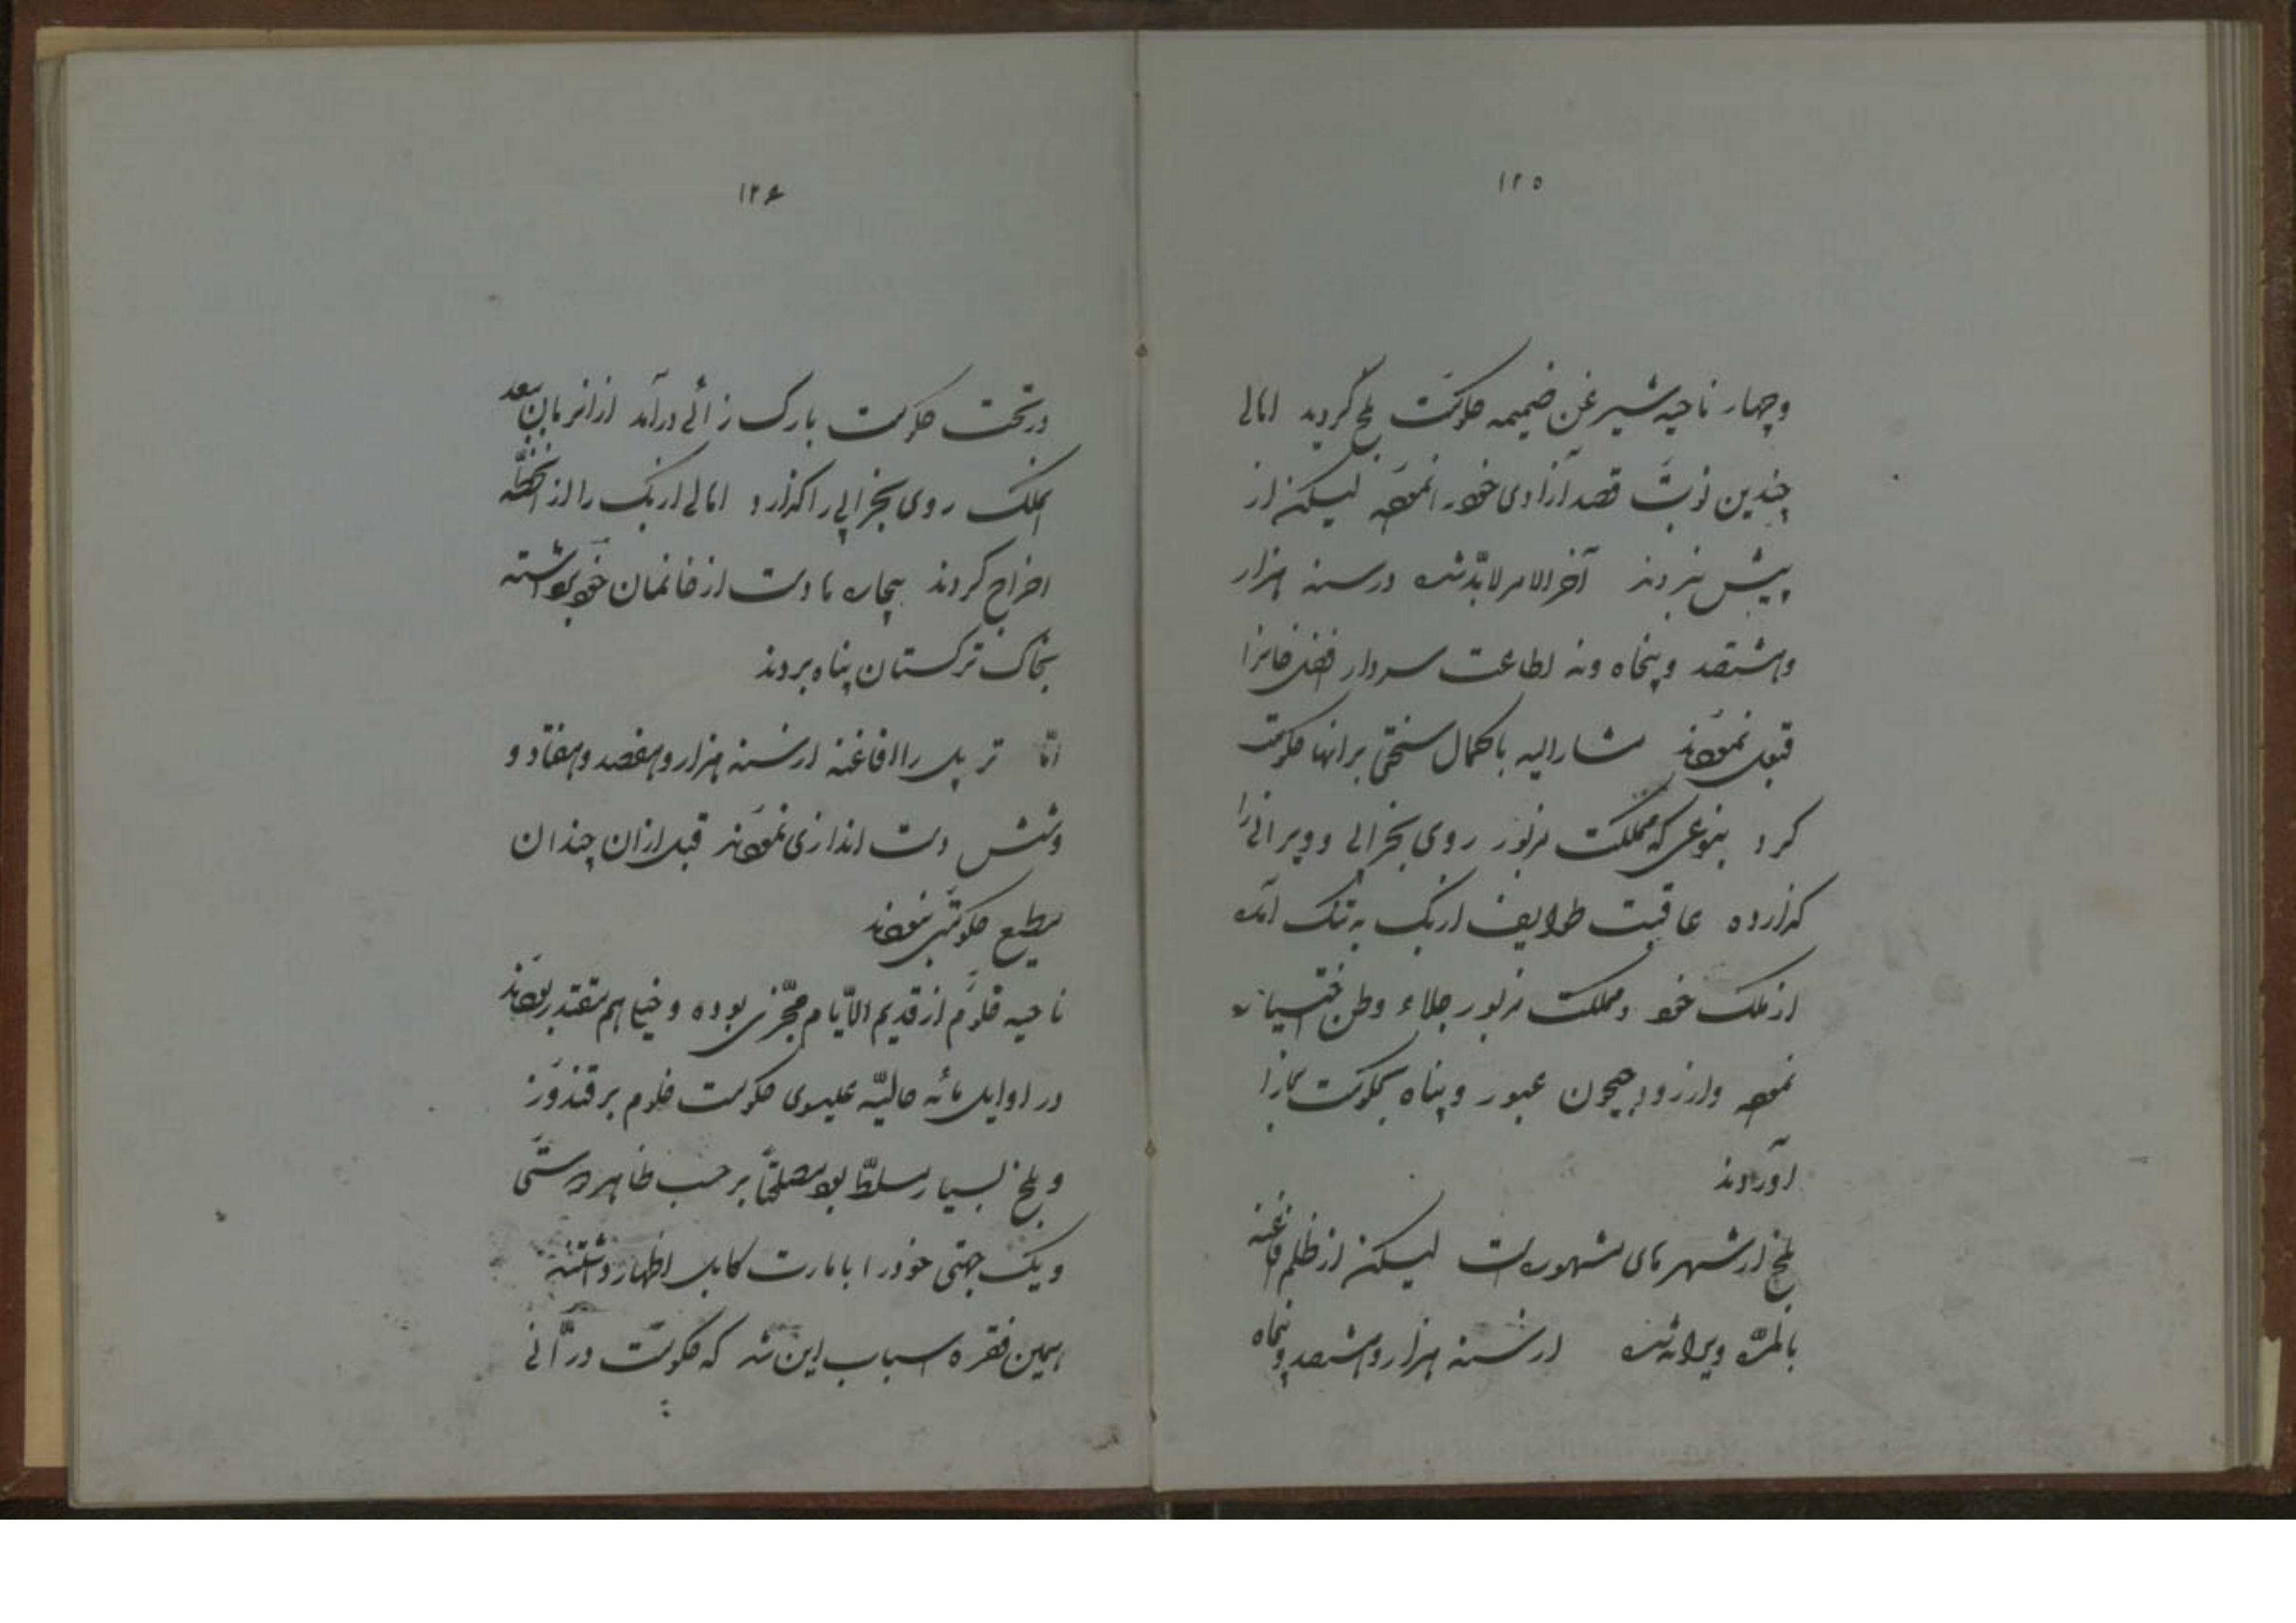 ١٢٥
وچهار ناحیه شیرغن ضمیمه حکومت بلخ گردید اهالی
چندین نوبت قصد آزادی خود را نموده لیکن از
پیش نبردند آخر الامر لابدّ شده در سنه هزار
وهشتصد و پنجاه ونه اطاعت سردار افضل خانرا
قبول نمودند مشار الیه با کمال سختی برانها حکومت
کرد بنوعی که مملکت مزبور روی بخرابی و ویرانی را
گذارده عاقبت طوایف ازبک به تنگ آمده
از ملک خود و مملکت مزبور جلاء وطن اختیار
نموده و از رود جیحون عبور و پناه بحکومت بخارا
آوردند
بلخ از شهر های مشهور است لیکن از ظلم افاغنه
بالمرّه ویرانه شده از سنه هزار و هشتصد و پنجاه
١٢۶
در تحت حکومت بارک زائی درآمد از انزمان ببعد
آنملک روی بخرابی را گذارد اهالی ازبک را از آنخطّه
اخراج کردند بیچاره ها دست از خانمان خود برداشته
بخاک ترکستان پناه بردند
امّا سر پل را افاغنه از سنه هزار و هفصد و هفتاد و
وشش دست اندازی نمودند قبل از ان چندان
مطیع حکومتی نبودند
ناحیه خلوم از قدیم الایّام مجزّی بوده و خیلی هم مقتدر بودند
در اوایل مائه حالیّه عیسوی حکومت خلوم بر قندوز
و بلخ بسیار مسلّط بود مصلحتاً بر حسب ظاهر دوستی
و یک جهتی خود را با امارت کابل اظهار داشتند
همین فقره اسباب این شد که حکومت درّانی